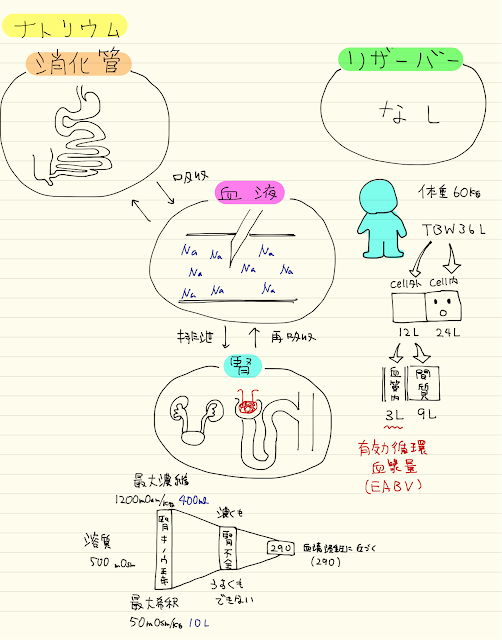 ナトリウム
消化管
リザーバー
なし
吸収
血液
Na Na Na
Na Na Na
Na Na Na
排泄
再吸収
腎
体重60kg
TBW36L
cell外 cell内
12L 24L
血管内 間質
3L 9L
有効循環
血漿量
(EABV)
最大濃縮
1200mOsm/kg 400mL
溶質
500 mOsm
腎キノウ正常
濃くも
腎不全
うすくも
できない
290
血漿浸透圧に近づく
(290)
最大希釈
50mOsm/kg 10L